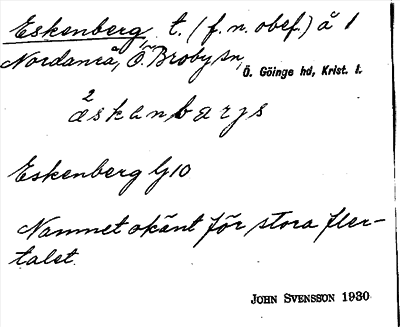 Eskenberg, t. (f. n. obef.) å 1
Nordanså, Ö. Broby sn,
Ö. Göinge hd, Krist. l.
2
æskanbarjs
Eskenberg Gj10
Namnet okänt för stora fler-
talet.
JOHN SVENSSON 1930